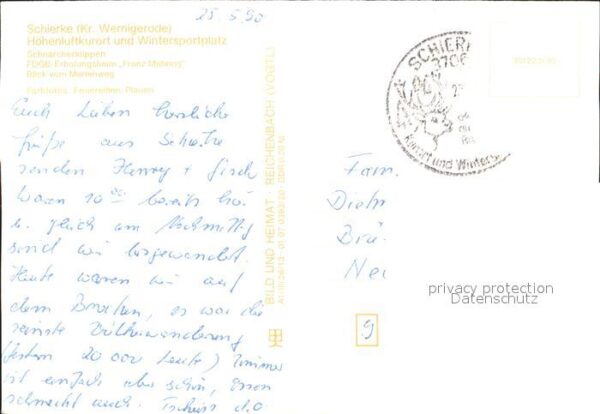 25.5.90
Schierke (Kr. Wernigerode)
Höhenluftkurort und Wintersportplatz
Schnarcherklippen
FDGB-Erholungsheim „Franz Mehring"
Blick vom Marienweg
Plauen
Euch Lieben herzliche
Grüße aus Schierke
senden Henry +
Waren 10⁰⁰ bereits hier
u. gleich am Nachmittag
sind wir losgewandert.
Heute waren wir auf
dem Brocken, es war die
reinste Völkerwanderung
(gestern 20 000 Leute) Zimmer
ist einfach aber schön, Essen
schmeckt auch. Tschüss d.O.
BILD UND HEIMAT · REICHENBACH (VOGTL)
SCHIERK
3706
Kurort und Winters
Fam.
Diet
Brü
Neu
privacy protection
Datenschutz
9